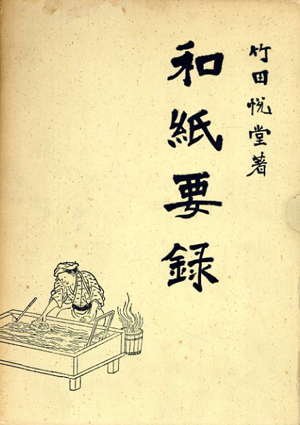 竹田悦堂著
和紙要録